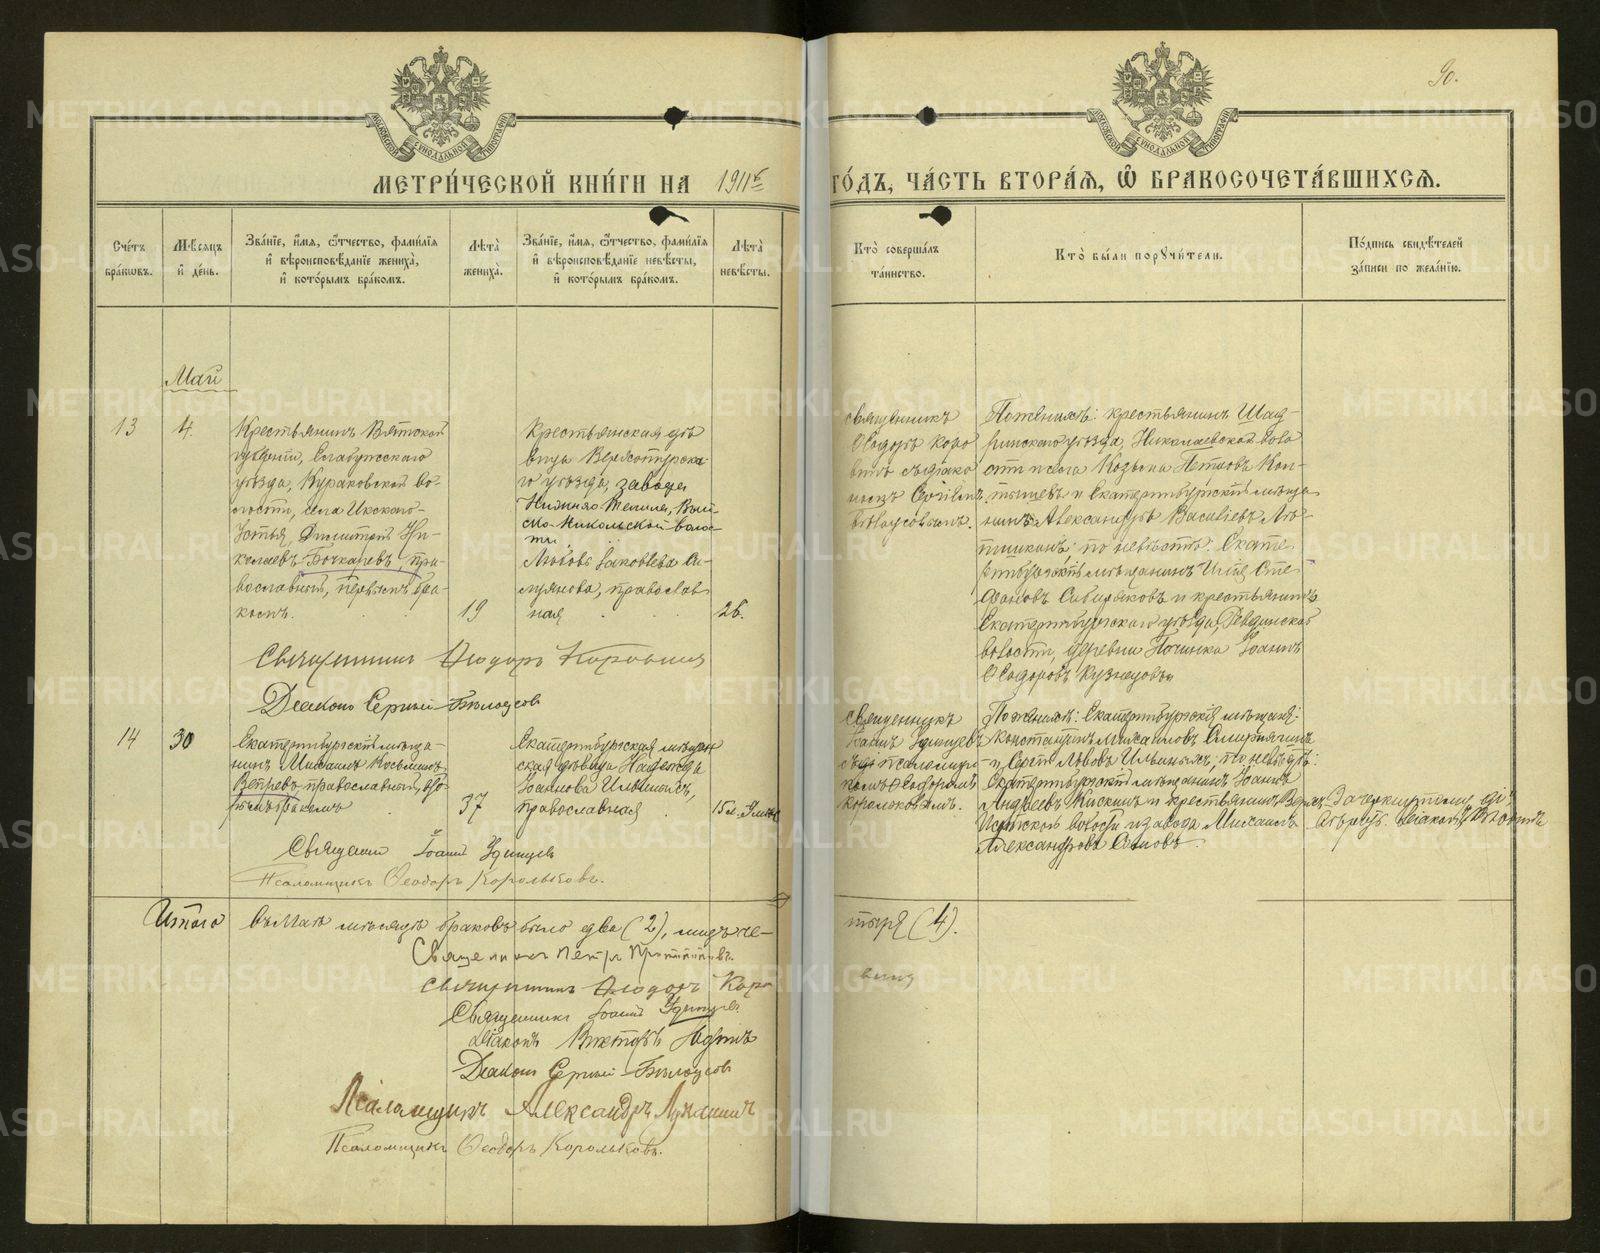 90.
МЕТРИ́ЧЕСКОЙ КНИ́ГИ НА 1911й ГО́ДЪ, ЧА́СТЬ ВТОРА́Я, Ѽ БРАКОСОЧЕТА́ВШИХСЯ.
Сче́тъ бра́кѡвъ.
Мѣ́сяцъ и҆ де́нь.
Зва́нїе, и҆́мя, ѻ҆́тчество, фами́лїя и҆ вѣроисповѣ́данїе жениха̀, и҆ кото́рымъ бра́комъ.
Лѣта̀ жениха̀.
Зва́нїе, и҆́мя, ѻ҆́тчество, фами́лїя и҆ вѣроисповѣ́данїе невѣ́сты, и҆ кото́рымъ бра́комъ.
Лѣта̀ невѣ́сты.
Кто̀ соверша́лъ та́инство.
Кто̀ бы́ли порꙋчи́тели.
По́дпись свидѣ́телей за́писи по жела́нїю.
Май
13
4.
Крестьянинъ Вятской
губернiи, Елабужскаго
уѣзда, Кураковской во-
лости, села Икскаго-
Устья, Димитрiй Ни-
колаевъ Бочкаревъ, пра-
вославный, первымъ бра-
комъ.
19
Крестьянская дѣ
вица Верхотурска-
го уѣзда, завода
Нижняго Тагила, Вый-
ско-Никольской воло-
сти
Любовь Iаковлева Си-
луянова, православ-
ная
26.
священникъ
Ѳеодоръ Коро
винъ съ дiако
номъ Сергiемъ
Бѣлоусовымъ.
По женихѣ: крестьянинъ Шад-
ринскаго уѣзда, Николаевской воло
сти и села Козьма Петровъ Коп-
тышевъ и Екатеринбургскiй мѣща
нинъ Александръ Васильевъ Лѣ-
тишинъ; по невѣстѣ: Екате-
ринбургскiй мѣщанинъ Илiя Сте
фановъ Сибиряковъ и крестьянинъ
Екатеринбургскаго уѣзда, Ревдинской
волости, деревни Починка Iоаннъ
Ѳеодоровъ Кузнецовъ
Священникъ Ѳеодоръ Коровинъ
Дiаконъ Сергiй Бѣлоусовъ
14
30
Екатеринбургскiй мѣща-
нинъ Михаилъ Косьминъ
Вепревъ, православный, вто-
рымъ бракомъ
37
Екатеринбургская мѣщан
ская дѣвица Надежда
Iоаннова Ильиныхъ,
православная
священникъ
Iоаннъ Удинцевъ
съ псаломщи
комъ Ѳеодоромъ
Корольковымъ.
По женихѣ: Екатеринбургскiе мѣщане:
Константинъ Михаиловъ Смирнягинъ
и Сергiй Львовъ Ильиныхъ; по невѣстѣ:
Екатеринбургскiй мѣщанинъ Iоаннъ
Андреевъ Кискинъ и крестьянинъ Верхъ
Исетской волости и завода Михаилъ
Александровъ
Зачеркнутому
Священникъ Iоаннъ Удинцевъ
Псаломщикъ Ѳеодоръ Корольковъ.
Итого въ Маѣ мѣсяцѣ браковъ было два (2), лицъ че-
тыре (4).
Священникъ Петръ
Священникъ Ѳеодоръ Коро
винъ
Священникъ Iоаннъ Удинцевъ.
Дiаконъ Викторъ
Дiаконъ Сергiй Бѣлоусовъ
Псаломщикъ Александръ Луканинъ
Псаломщикъ Ѳеодоръ Корольковъ.
METRIKI.GASO-URAL.RU